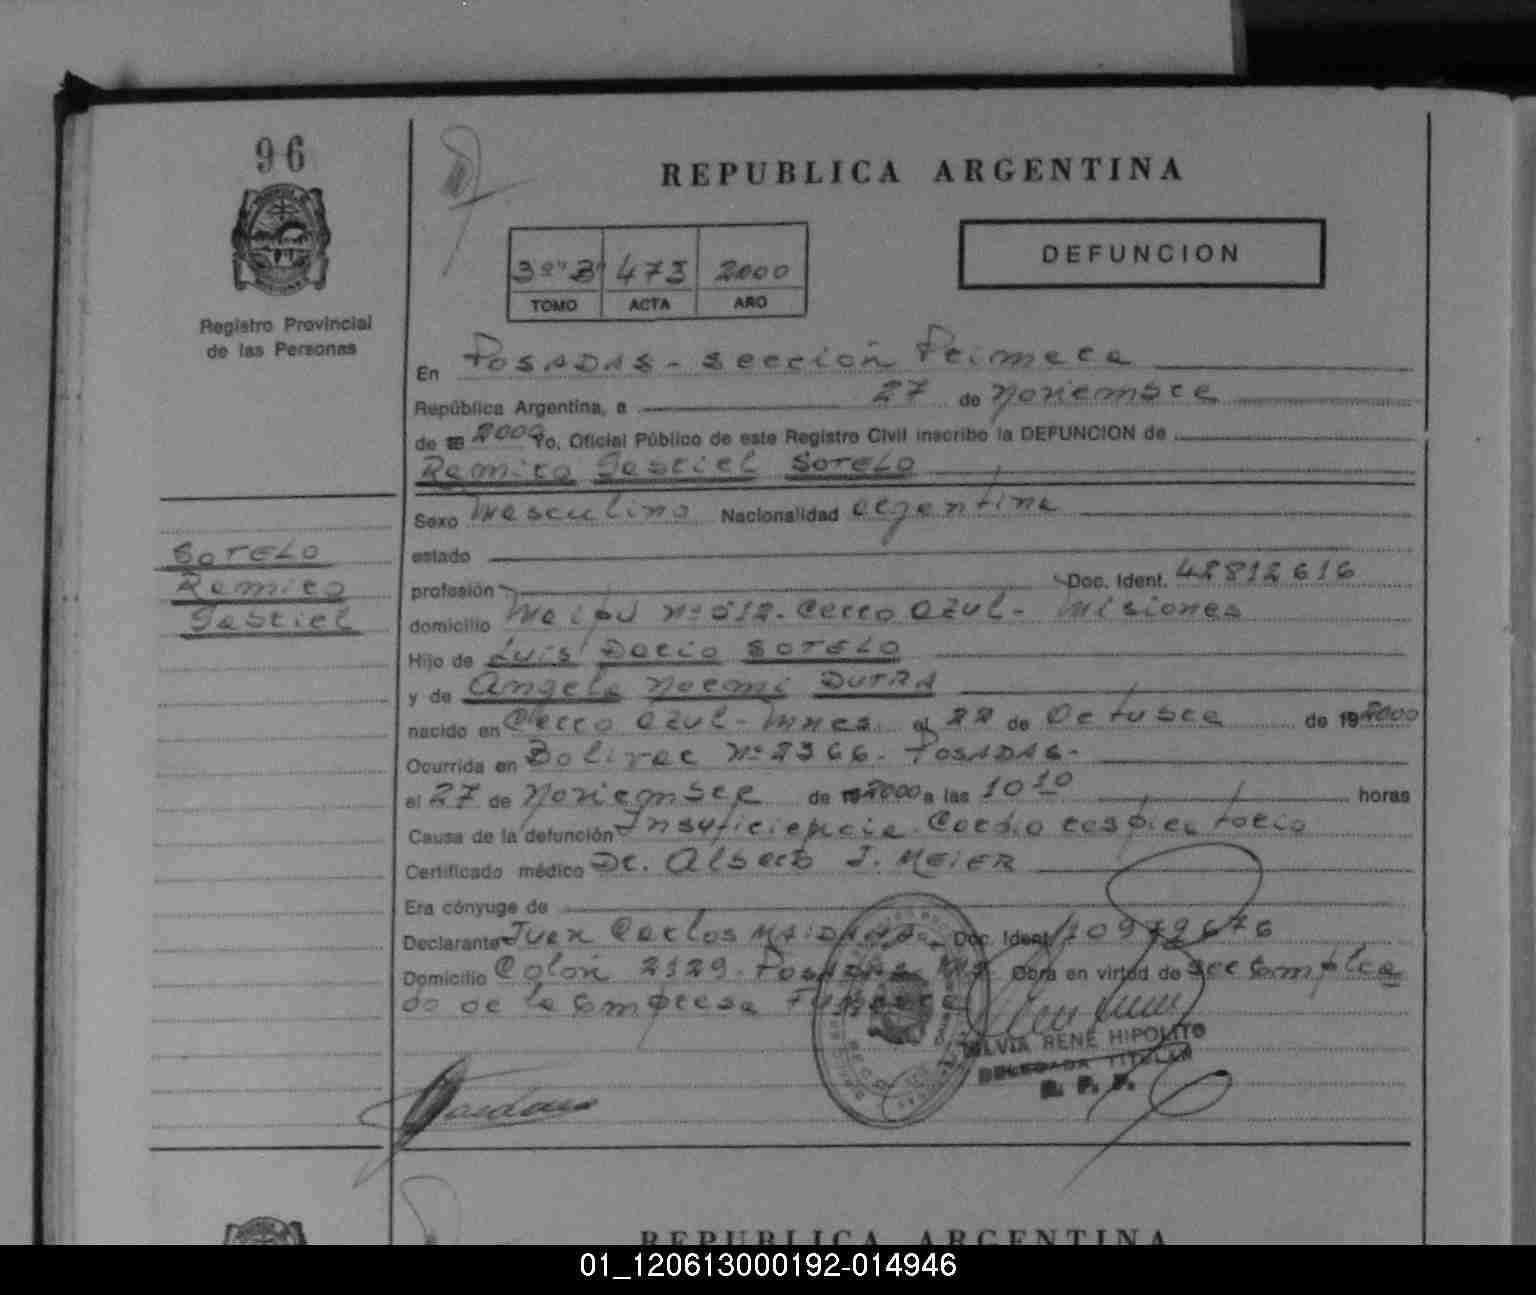 96
REPUBLICA ARGENTINA
DEFUNCION
3º "B" 473 2000
TOMO ACTA AÑO
Registro Provincial
de las Personas
En POSADAS - Sección Primera
República Argentina, a 27 de Noviembre
de 19 2000 Yo, Oficial Público de este Registro Civil inscribo la DEFUNCION de
Ramiro Gabriel SOTELO
Sexo Masculino Nacionalidad argentina
SOTELO
Ramiro
Gabriel
estado
profesión Doc. Ident. 42812616
domicilio Maipú Nº 512. Cerro Azul - Misiones
Hijo de Luis Dario SOTELO
y de Angela Noemi DUTRA
nacido en Cerro Azul - Mnes. el 22 de Octubre de 19 2000
Ocurrida en Bolivar Nº 2366. POSADAS -
el 27 de Noviembre de 19 2000 a las 10 10 horas
Causa de la defunción Insuficiencia Cardio respiratorio
Certificado médico Dr. Alberto J. MEIER
Era cónyuge de
Declarante Juan Carlos MAIDANA Doc. Ident. 10979676
Domicilio Colón 2129. Posadas Mns Obra en virtud de ser emplea
do de la empresa Funeraria
SILVIA RENE HIPOLITO
DELEGADA TITULAR
R. P. P.
REPUBLICA ARGENTINA
01_120613000192-014946